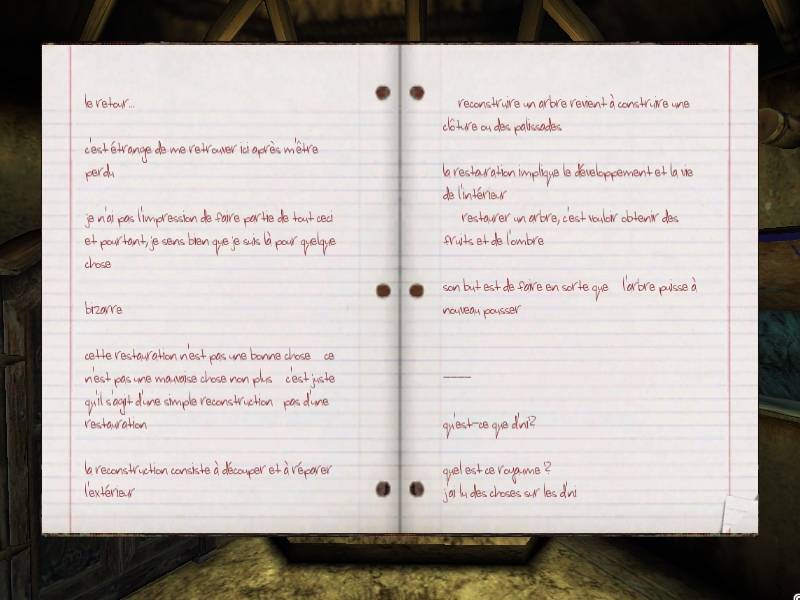 le retour...
c'est étrange de me retrouver ici après m'être
perdu
je n'ai pas l'impression de faire partie de tout ceci
et pourtant, je sens bien que je suis là pour quelque
chose
bizarre
cette restauration n'est pas une bonne chose ce
n'est pas une mauvaise chose non plus c'est juste
qu'il s'agit d'une simple reconstruction pas d'une
restauration
la reconstruction consiste à découper et à réparer
l'extérieur
reconstruire un arbre revient à construire une
clôture ou des palissades
la restauration implique le développement et la vie
de l'intérieur
restaurer un arbre, c'est vouloir obtenir des
fruits et de l'ombre
son but est de faire en sorte que l'arbre puisse à
nouveau pousser
____
qu'est-ce que d'ni?
quel est ce royaume ?
j'ai lu des choses sur les d'ni